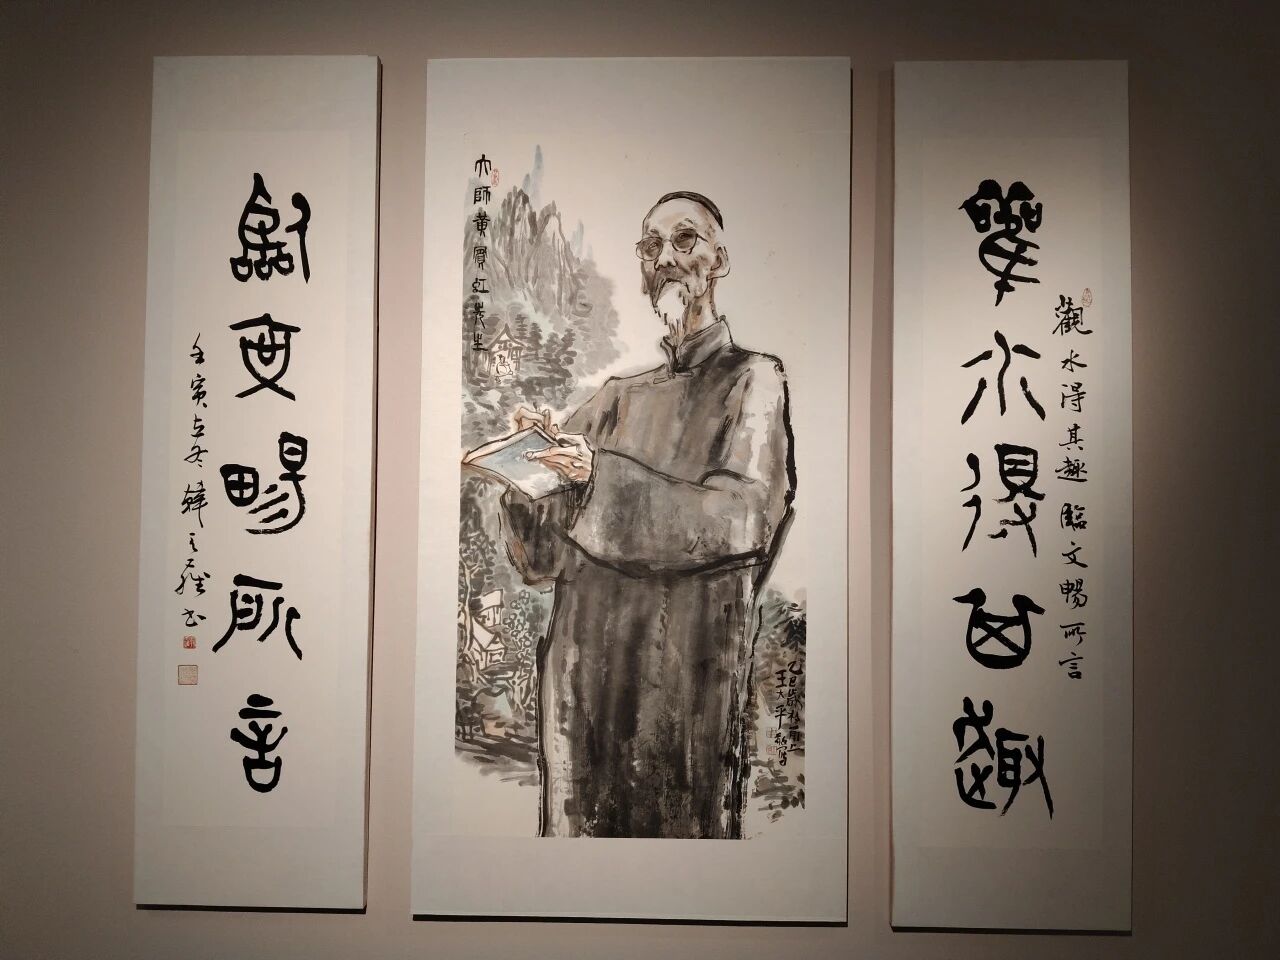 觀水得其趣
觀水得其趣臨文暢所言
大師黃賓虹先生
乙巳歲
王大平敬寫
臨文暢所言
壬寅立冬韓
書